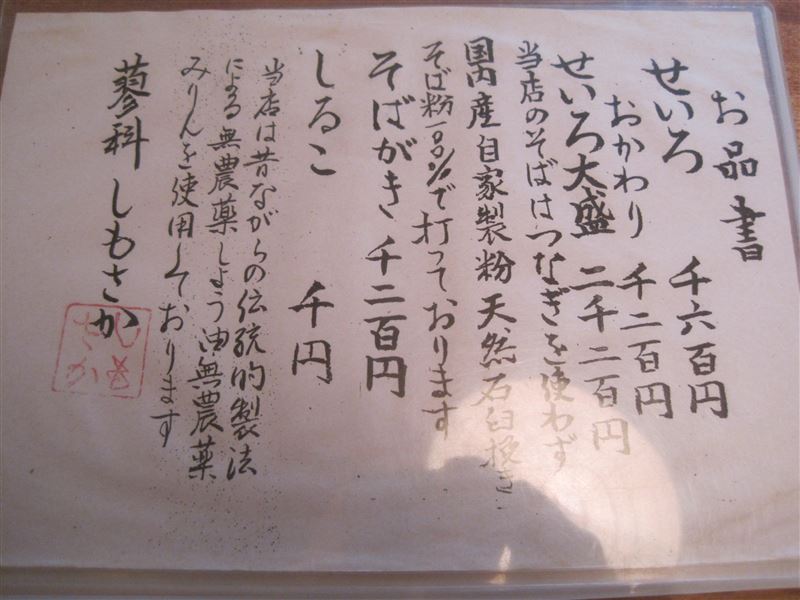 お品書
せいろ 千六百円
おかわり 千二百円
せいろ大盛 二千二百円
当店のそばはつなぎを使わず
国内産自家製粉天然石臼挽き
そば粉100%で打っております
そばがき 千二百円
しるこ 千円
当店は昔ながらの伝統的製法
による無農薬しょう油無農薬
みりんを使用しております
蓼科 しもさか
しも
さか